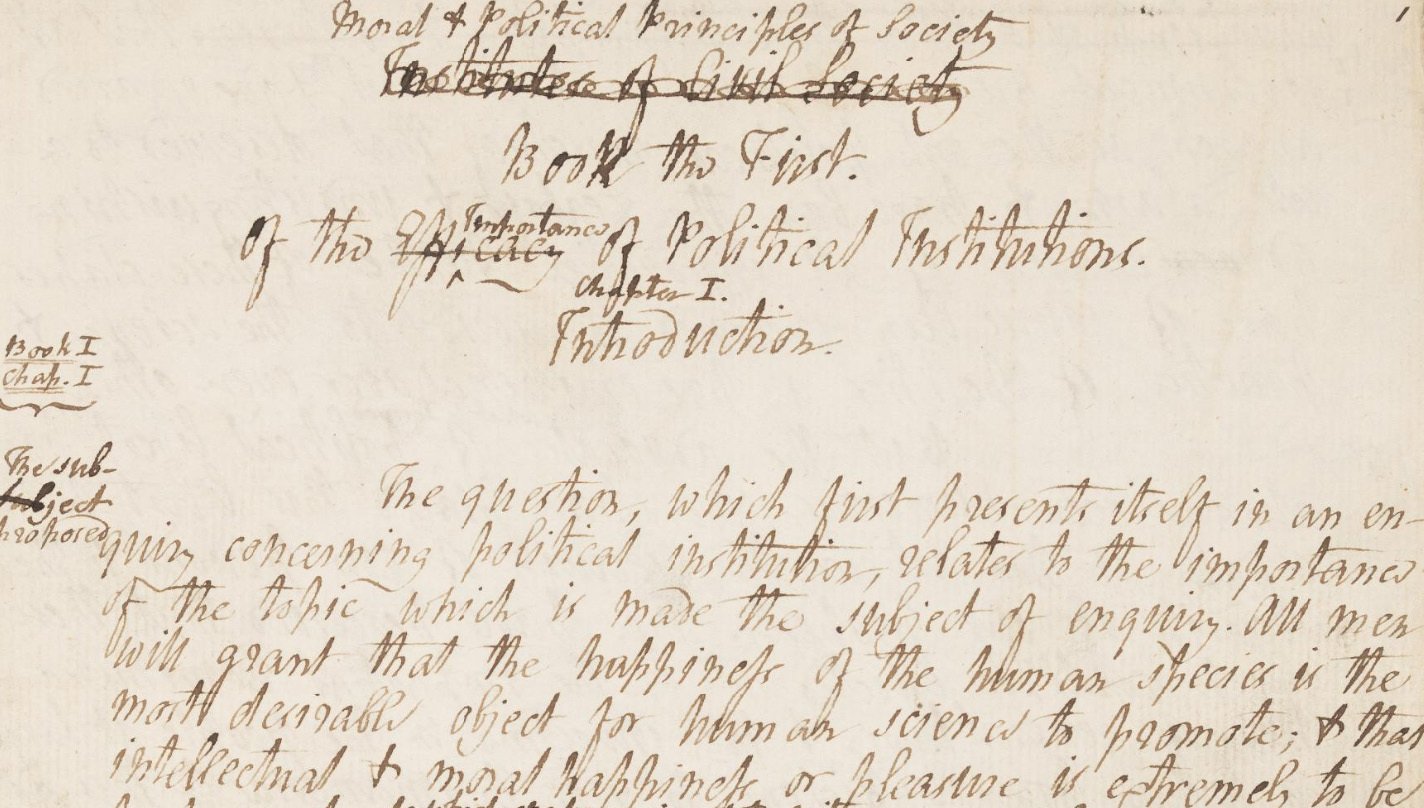 Moral & Political Principles of Society
Institutes of Civil Society
Book the First.
Of the Efficacy Importance of Political Institutions.
Chapter I.
Introduction.
Book I
Chap. I
The sub-
ject
proposed
The question, which first presents itself in an en-
quiry concerning political institution, relates to the importance
of the topic which is made the subject of enquiry. All men
will grant that the happiness of the human species is the
most desirable object for human science to promote; & that
intellectual & moral happiness or pleasure is extremely to be